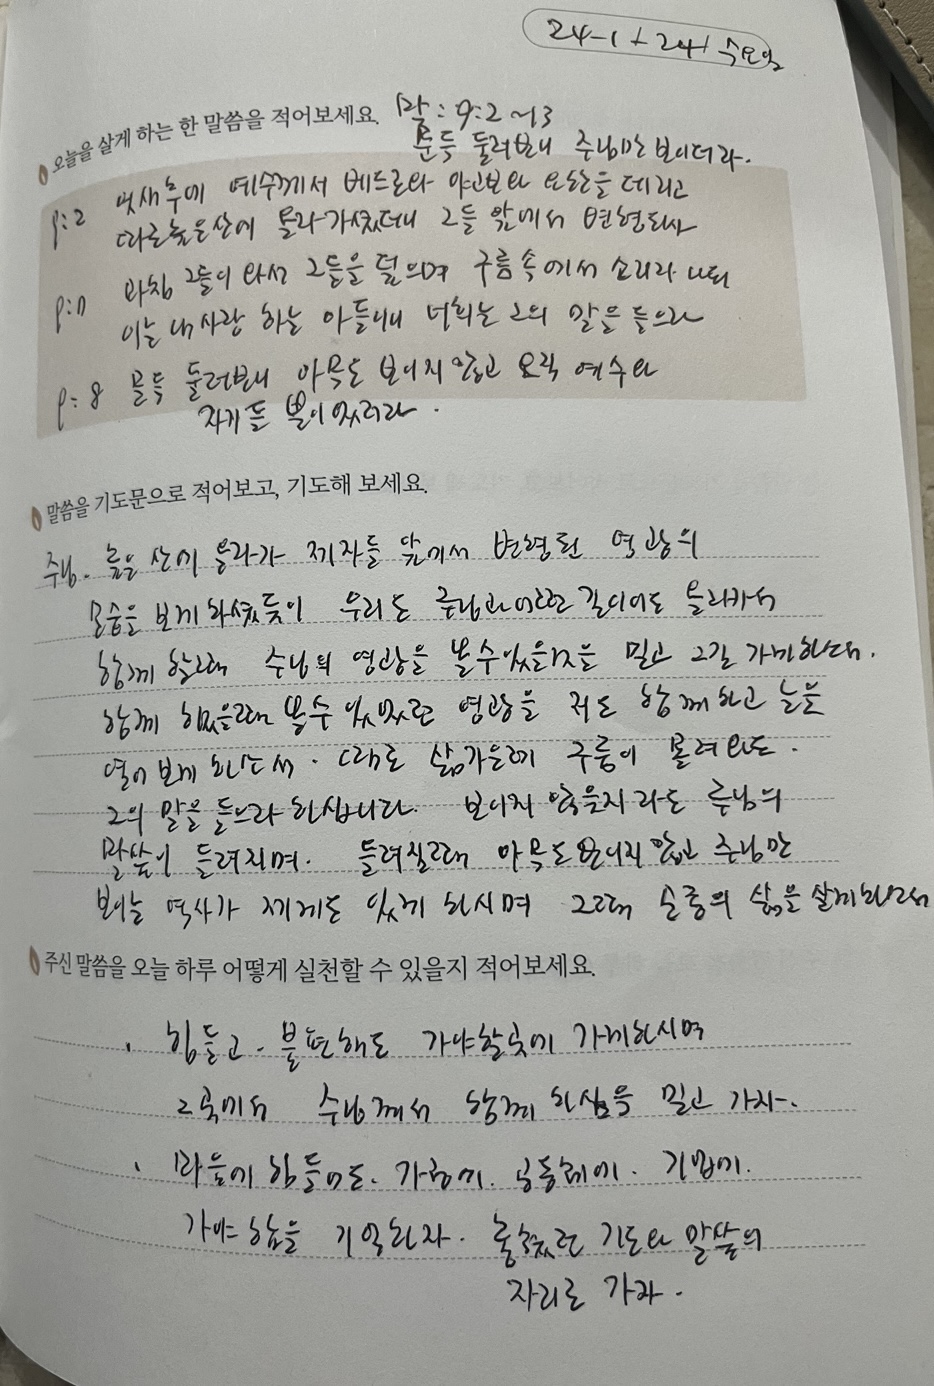 24-1 + 24+ 수요일
오늘을 살게 하는 한 말씀을 적어보세요. 막: 9:2~13
문득 둘러보니 주님만 보이더라.
9:2 엿새후에 예수께서 베드로와 야고보와 요한을 데리고
따로높은산에 올라가셨더니 그들 앞에서 변형되사
마침 그들이 와서 그들을 덮으며 구름속에서 소리가 나되
이는 내사랑 하는 아들이니 너희는 그의 말을 들으라
9:8 문득 둘러보니 아무도 보이지 않고 오직 예수와
자기들 뿐이었더라.
말씀을 기도문으로 적어보고, 기도해 보세요.
주님. 높은 산에 올라가 제자들 앞에서 변형된 영광의
모습을 보게 하셨듯이 우리도 주님과 어떤 길이어도 올라가서
함께 할때 주님의 영광을 볼수있을것을 믿고 그길 가게하소서.
함께 했을때 볼수 있었던 영광을 저도 함께하고 눈을
열어 보게 하소서. 때로 삶가운데 구름이 몰려와도.
그의 말을 들으라 하십니다. 보이지 않을지라도 주님의
말씀이 들려지며. 들려질때 아무도 보이지 않고 주님만
보이는 역사가 제게도 있게 하시며 그때 순종의 삶을 살게하소서
주신 말씀을 오늘 하루 어떻게 실천할 수 있을지 적어보세요.
. 힘들고. 불편해도 가야할곳에 가게하시며
그곳에서 주님께서 함께 하심을 믿고 가자.
. 마음에 힘들어도. 가정에. 공동체에. 기쁨에.
가야 함을 기억하자. 기도와 말씀의
자리로 가라.